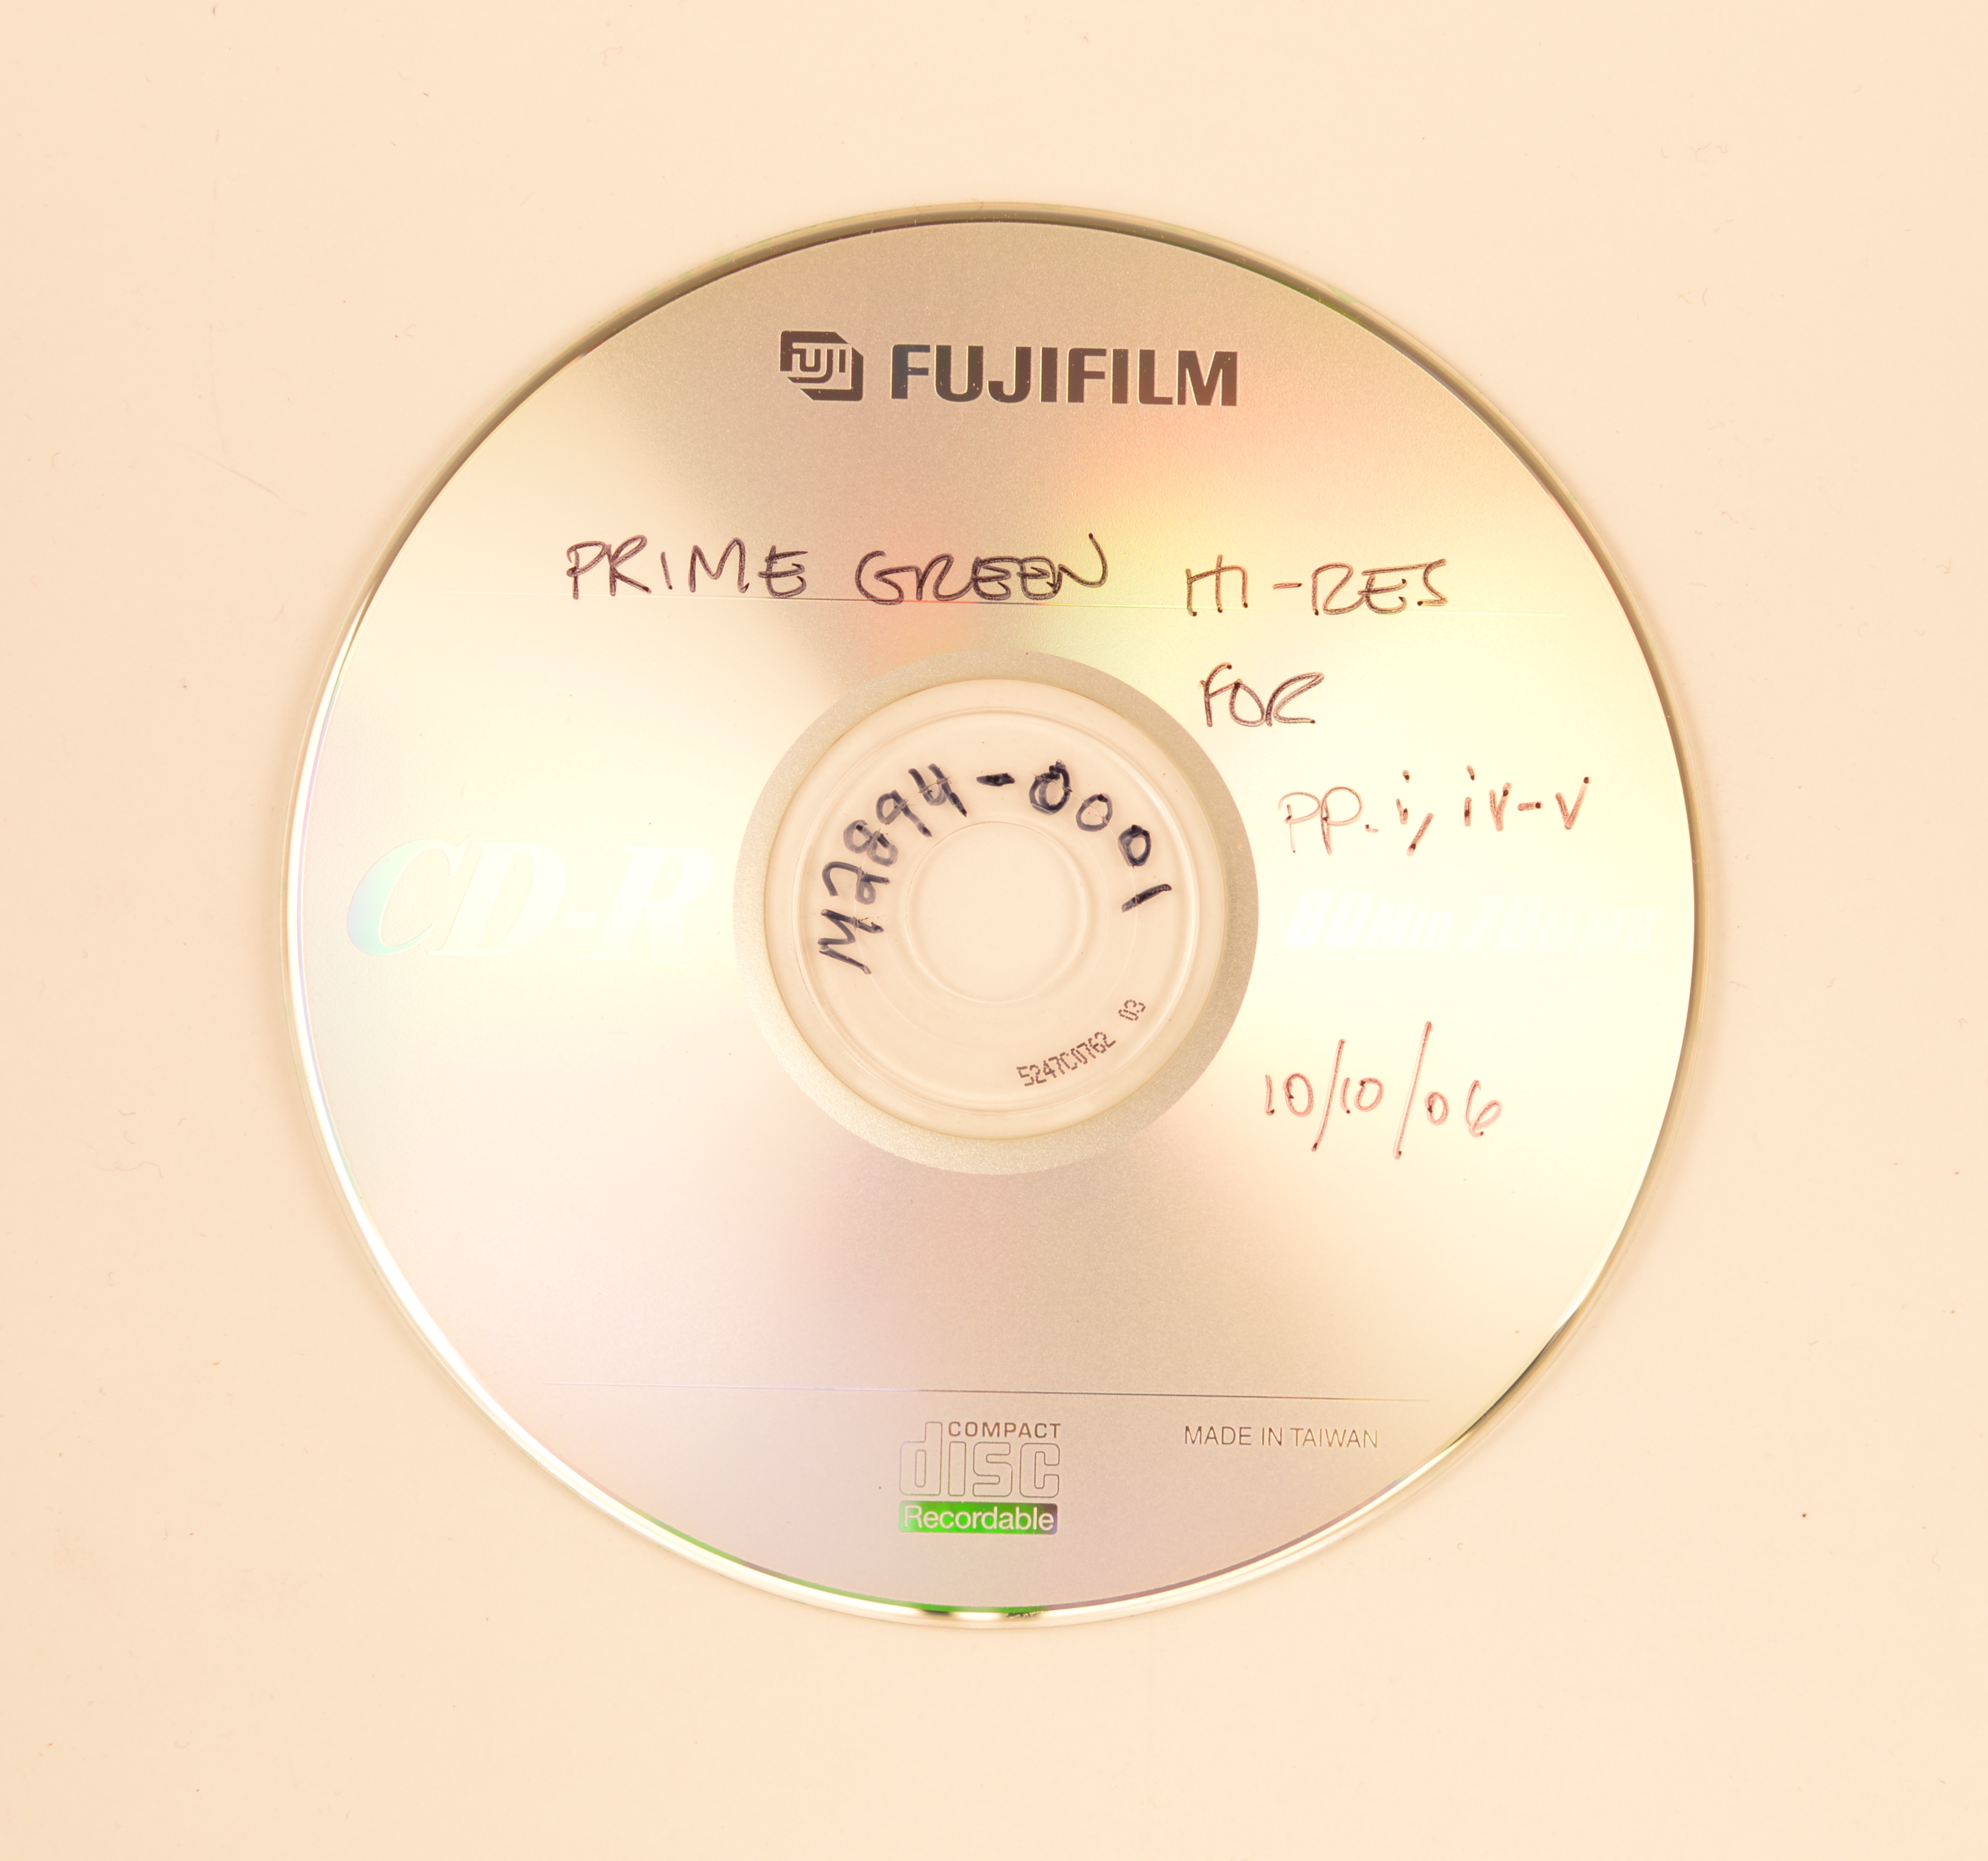 FUJI FUJIFILM
PRIME GREEN HI-RES
FOR
PP. i, iv-v
M2894-0001
CD-R
10/10/06
5247C0762 03
COMPACT
disc
Recordable
MADE IN TAIWAN